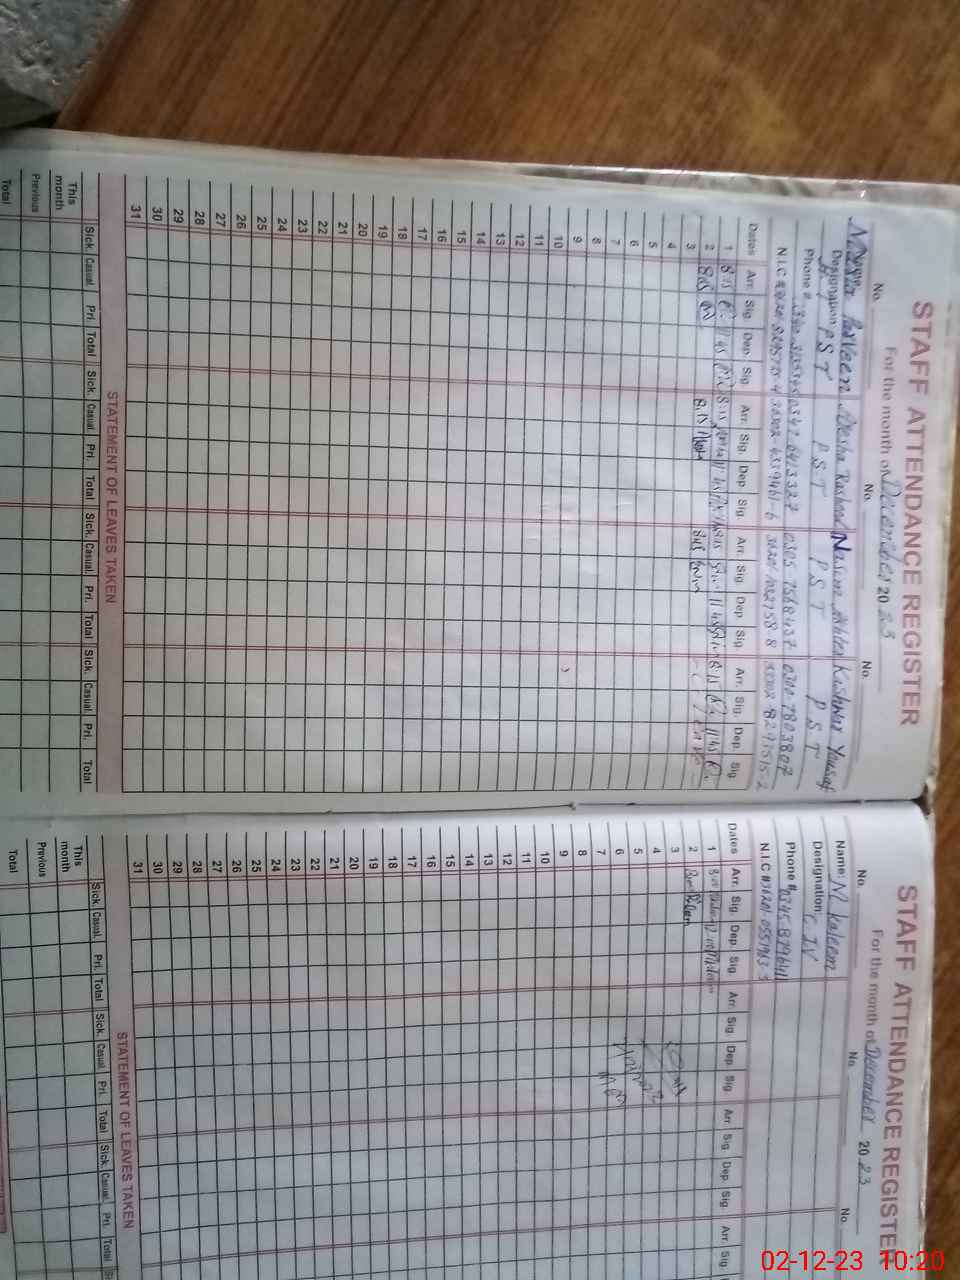 STAFF ATTENDANCE REGISTER
For the month of December 2023
No. No. No.
Name Parveen Aesha Rasheed Nasim Akhter Kashwar Yousaf
Designation PST PST PST PST
Phone # 0305 7568437 0300-7803807
N.I.C #
Dates Arr. Sig. Dep. Sig. Arr. Sig. Dep. Sig. Arr. Sig. Dep. Sig. Arr. Sig. Dep. Sig.
1 8:15 11:45 8:15 11:45 8:15 11:45 8:15 11:45
2 8:15 8:15 8:15 Leave
3
4
5
6
7
8
9
10
11
12
13
14
15
16
17
18
19
20
21
22
23
24
25
26
27
28
29
30
31
STATEMENT OF LEAVES TAKEN
Sick. Casual. Pri. Total Sick. Casual. Pri. Total Sick. Casual. Pri. Total Sick. Casual. Pri. Total
This month
Previous
Total
STAFF ATTENDANCE REGISTER
For the month of December 2023
No. No. No.
Name: M. Kaleem
Designation: C. IV
Phone # 0345-8796411
N.I.C # 36201-0551963-5
Dates Arr. Sig. Dep. Sig. Arr Sig. Dep. Sig. Arr Sig. Dep Sig. Arr. Sig
1
2
3
4
5
6
7
8
9
10
11
12
13
14
15
16
17
18
19
20
21
22
23
24
25
26
27
28
29
30
31
STATEMENT OF LEAVES TAKEN
Sick. Casual. Pri. Total Sick. Casual. Pri. Total Sick. Casual. Pri. Total
This month
Previous
Total
02-12-23 10:20